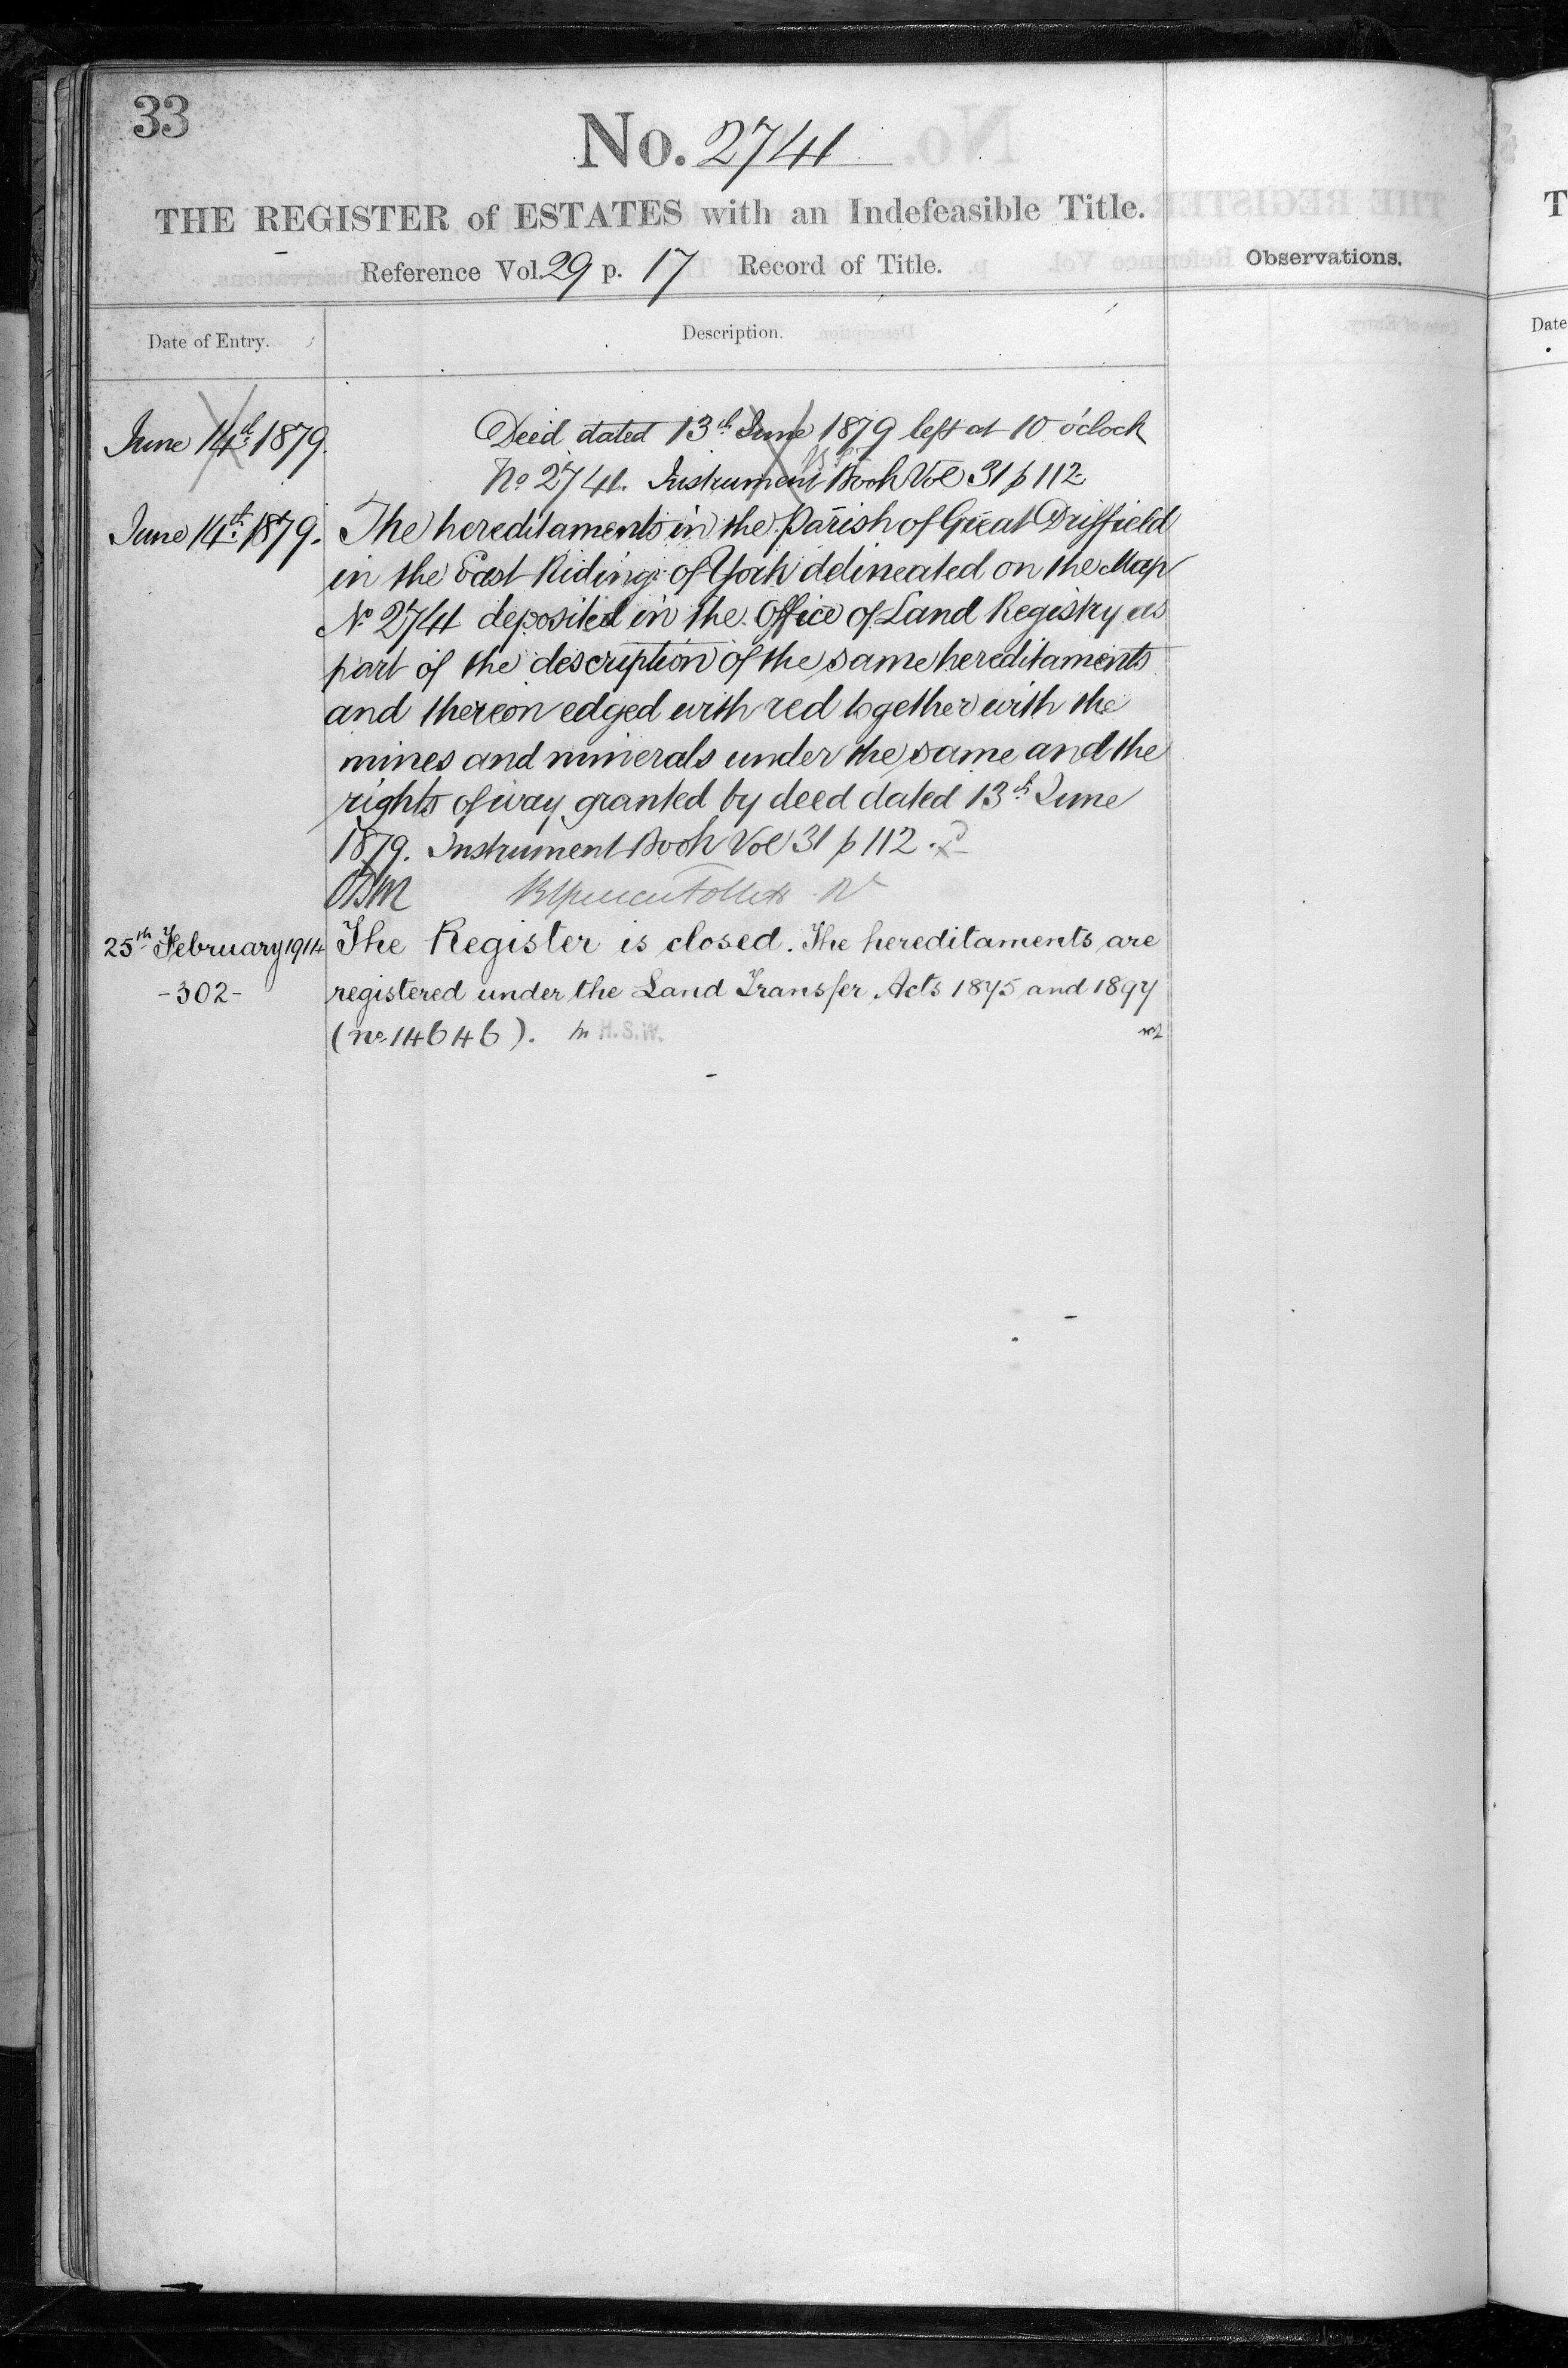 33
No. 2741
THE REGISTER of ESTATES with an Indefeasible Title.
Reference Vol. 29 p. 17 Record of Title.
Observations.
Date of Entry.
Description.
June 14th 1879.
Deed dated 13th June 1879 left at 10 o'clock
No 2741. Instrument Book Vol 31 p 112
June 14th 1879.
The hereditaments in the Parish of Great Driffield
in the East Riding of York delineated on the Map
No 2741 deposited in the Office of Land Registry as
part of the description of the same hereditaments
and thereon edged with red together with the
mines and minerals under the same and the
rights of way granted by deed dated 13th June
1879. Instrument Book Vol 31 p 112.
25th February 1914
-302-
The Register is closed. The hereditaments are
registered under the Land Transfer Acts 1875 and 1897
(no. 14646). H.S.W.
T
Date